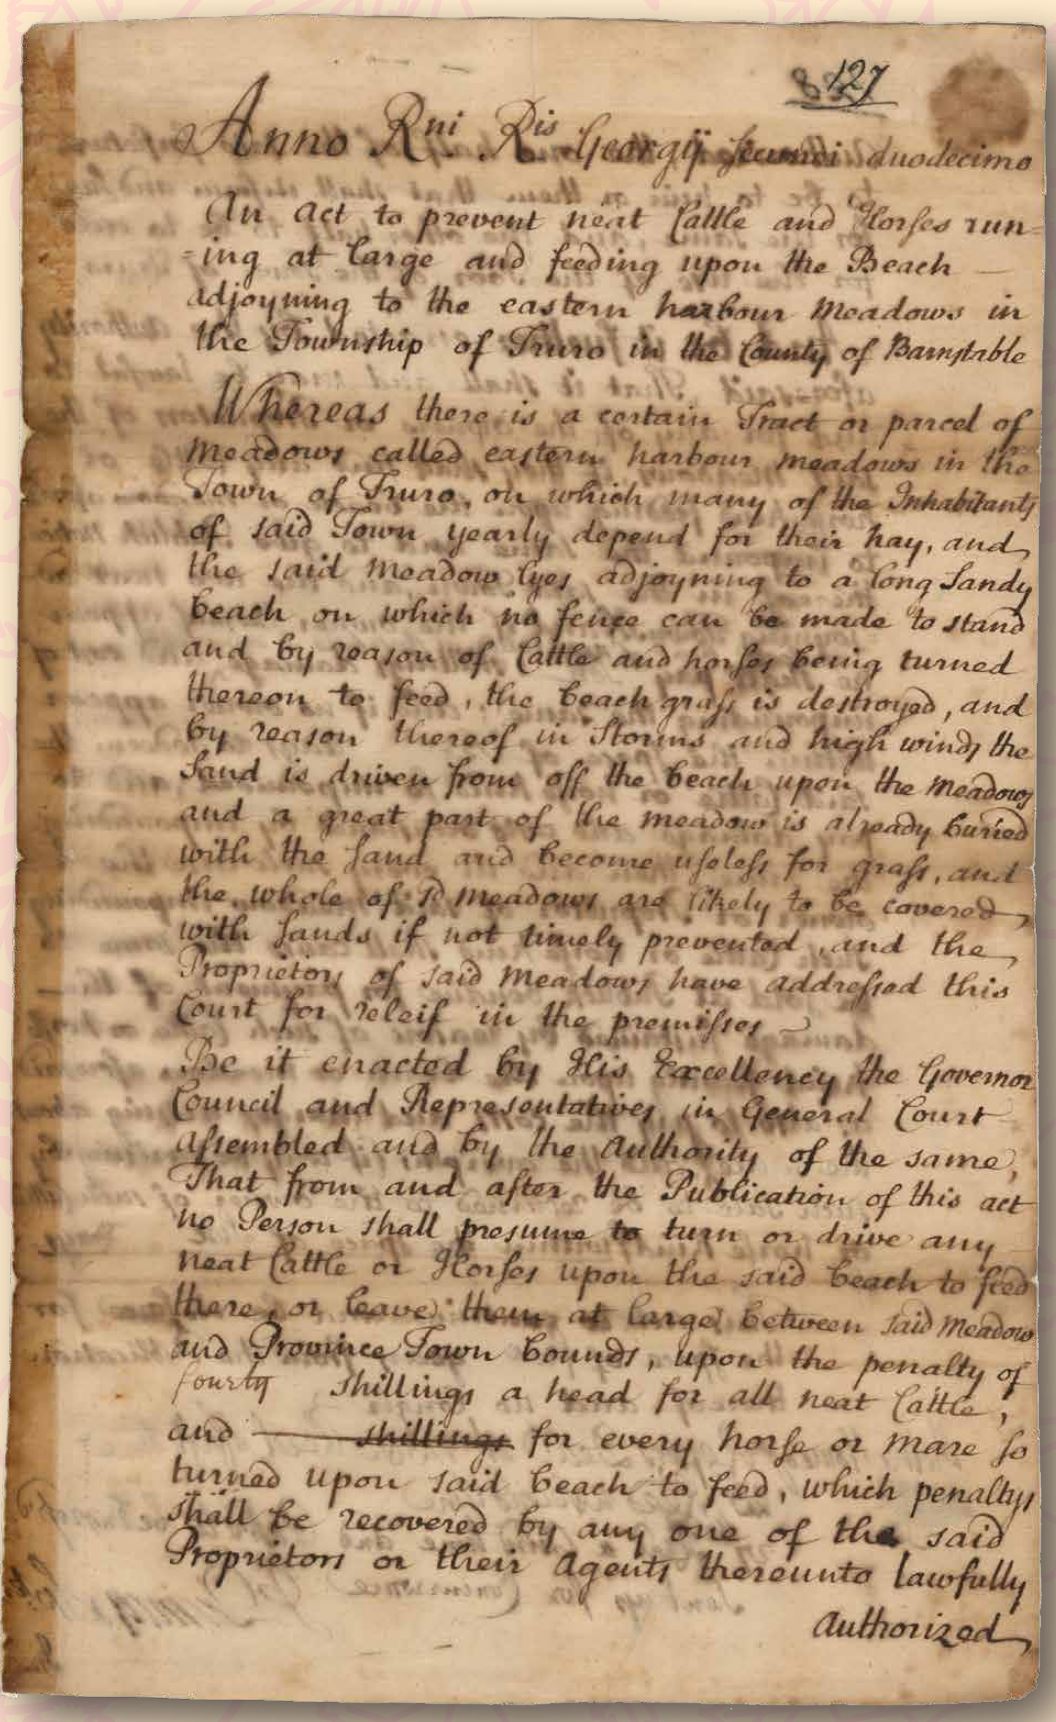 127
Anno Rni Ris Georgij Secundi duodecimo
An act to prevent neat Cattle and Horses run=
=ing at large and feeding upon the Beach —
adjoyning to the eastern harbour meadows in
the Township of Truro in the County of Barnstable
Whereas there is a certain Tract or parcel of
meadows called eastern harbour meadows in the
Town of Truro, on which many of the Inhabitants
of said Town yearly depend for their hay, and
the said meadow lyes adjoyning to a long Sandy
beach on which no fence can be made to stand
and by reason of Cattle and horses being turned
thereon to feed, the beach grass is destroyed, and
by reason thereof in Storms and high winds the
Sand is driven from off the beach upon the meadows
and a great part of the meadow is already buried
with the sand and become useless for grass, and
the whole of sd meadows are likely to be covered
with sands if not timely prevented, and the
Proprietors of said meadows have addressed this
Court for releif in the premisses —
Be it enacted by His Excellency the Governor
Council and Representatives in General Court
assembled and by the authority of the same,
That from and after the Publication of this act
no Person shall presume to turn or drive any
neat Cattle or Horses upon the said beach to feed
there, or leave them at large between said meadow
and Province Town bounds, upon the penalty of
fourty shillings a head for all neat Cattle,
and — shillings for every horse or mare so
turned upon said beach to feed, which penaltys
shall be recovered by any one of the said
Proprietors or their agents thereunto lawfully
authorized